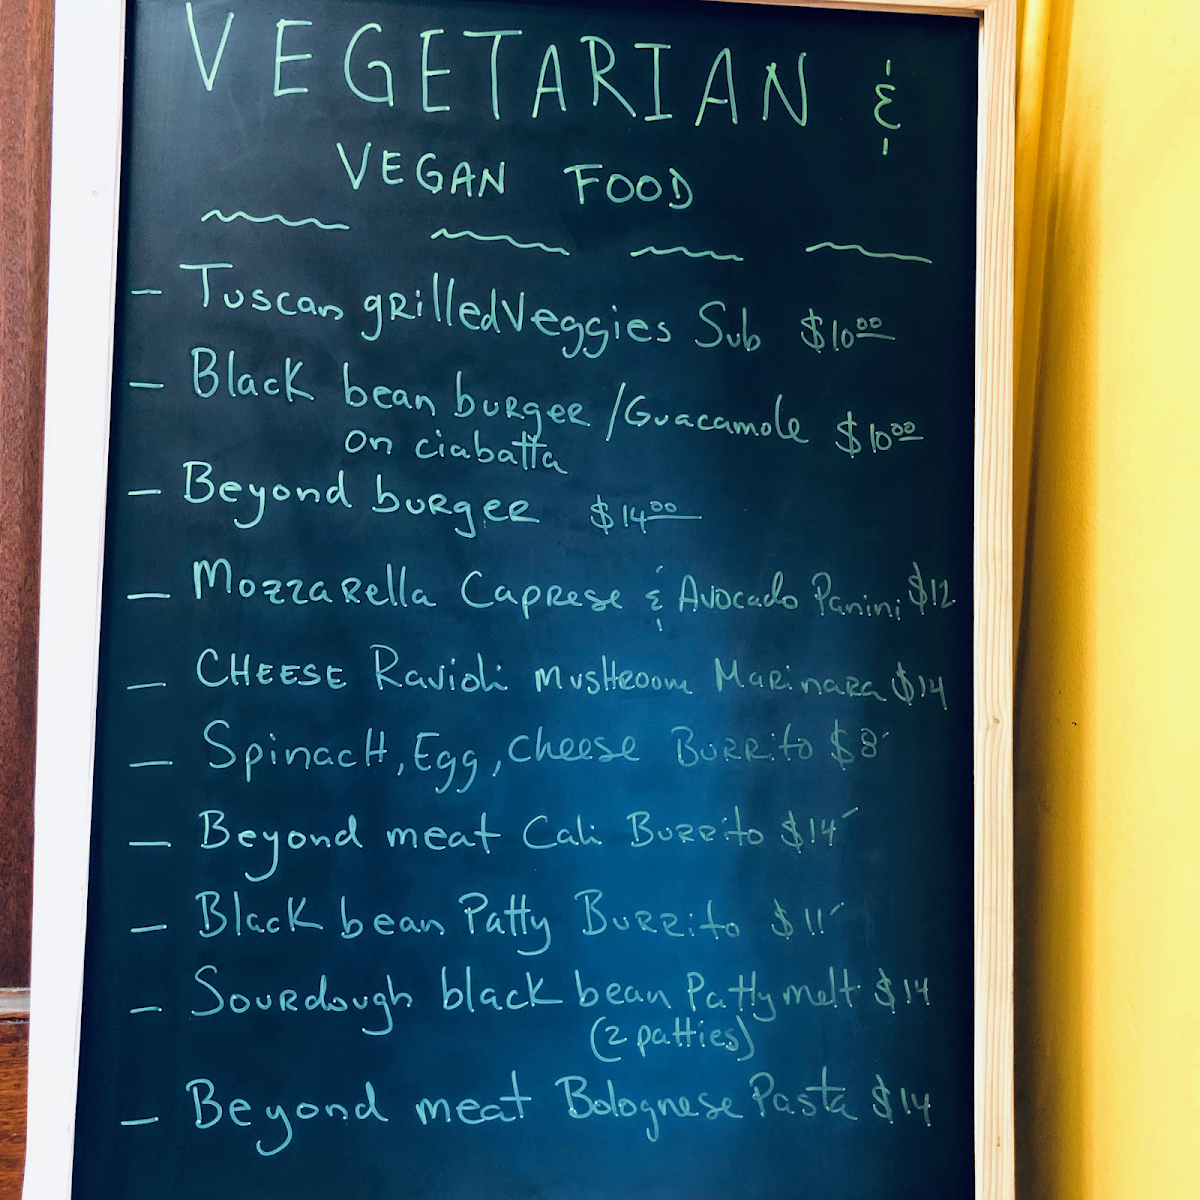 VEGETARIAN &
VEGAN FOOD
- Tuscan grilled Veggies Sub $10.00
- Black bean burger / Guacamole $10.00
on ciabatta
- Beyond burger $14.00
- Mozzarella Caprese & Avocado Panini $12
- CHEESE Ravioli Mushroom Marinara $14
- Spinach, Egg, cheese Burrito $8
- Beyond meat Cali Burrito $14
- Black bean Patty Burrito $11
- Sourdough black bean Patty melt $14
(2 patties)
- Beyond meat Bolognese Pasta $14